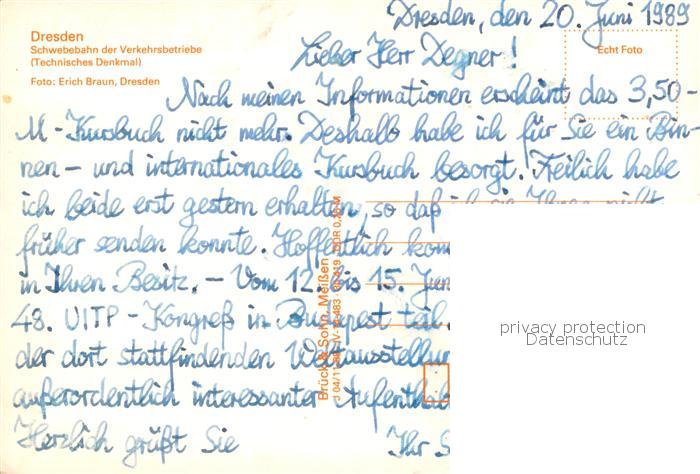 Dresden, den 20. Juni 1989
Dresden
Schwebebahn der Verkehrsbetriebe
(Technisches Denkmal)
Foto: Erich Braun, Dresden
Echt Foto
Lieber Herr Degner!
Nach meinen Informationen erscheint das 3,50-
M-Kursbuch nicht mehr. Deshalb habe ich für Sie ein Bin-
nen- und internationales Kursbuch besorgt. Freilich habe
ich beide erst gestern erhalten, so daß ich sie Ihnen nicht
früher senden konnte. Hoffentlich kom
in Ihren Besitz. - Vom 12. bis 15. Jun
48. UITP-Kongreß in Budapest teil.
der dort stattfindenden Weltausstellun
außerordentlich interessanter Aufenthal
Herzlich grüßt Sie Ihr S
Brück & Sohn, Meißen
privacy protection
Datenschutz